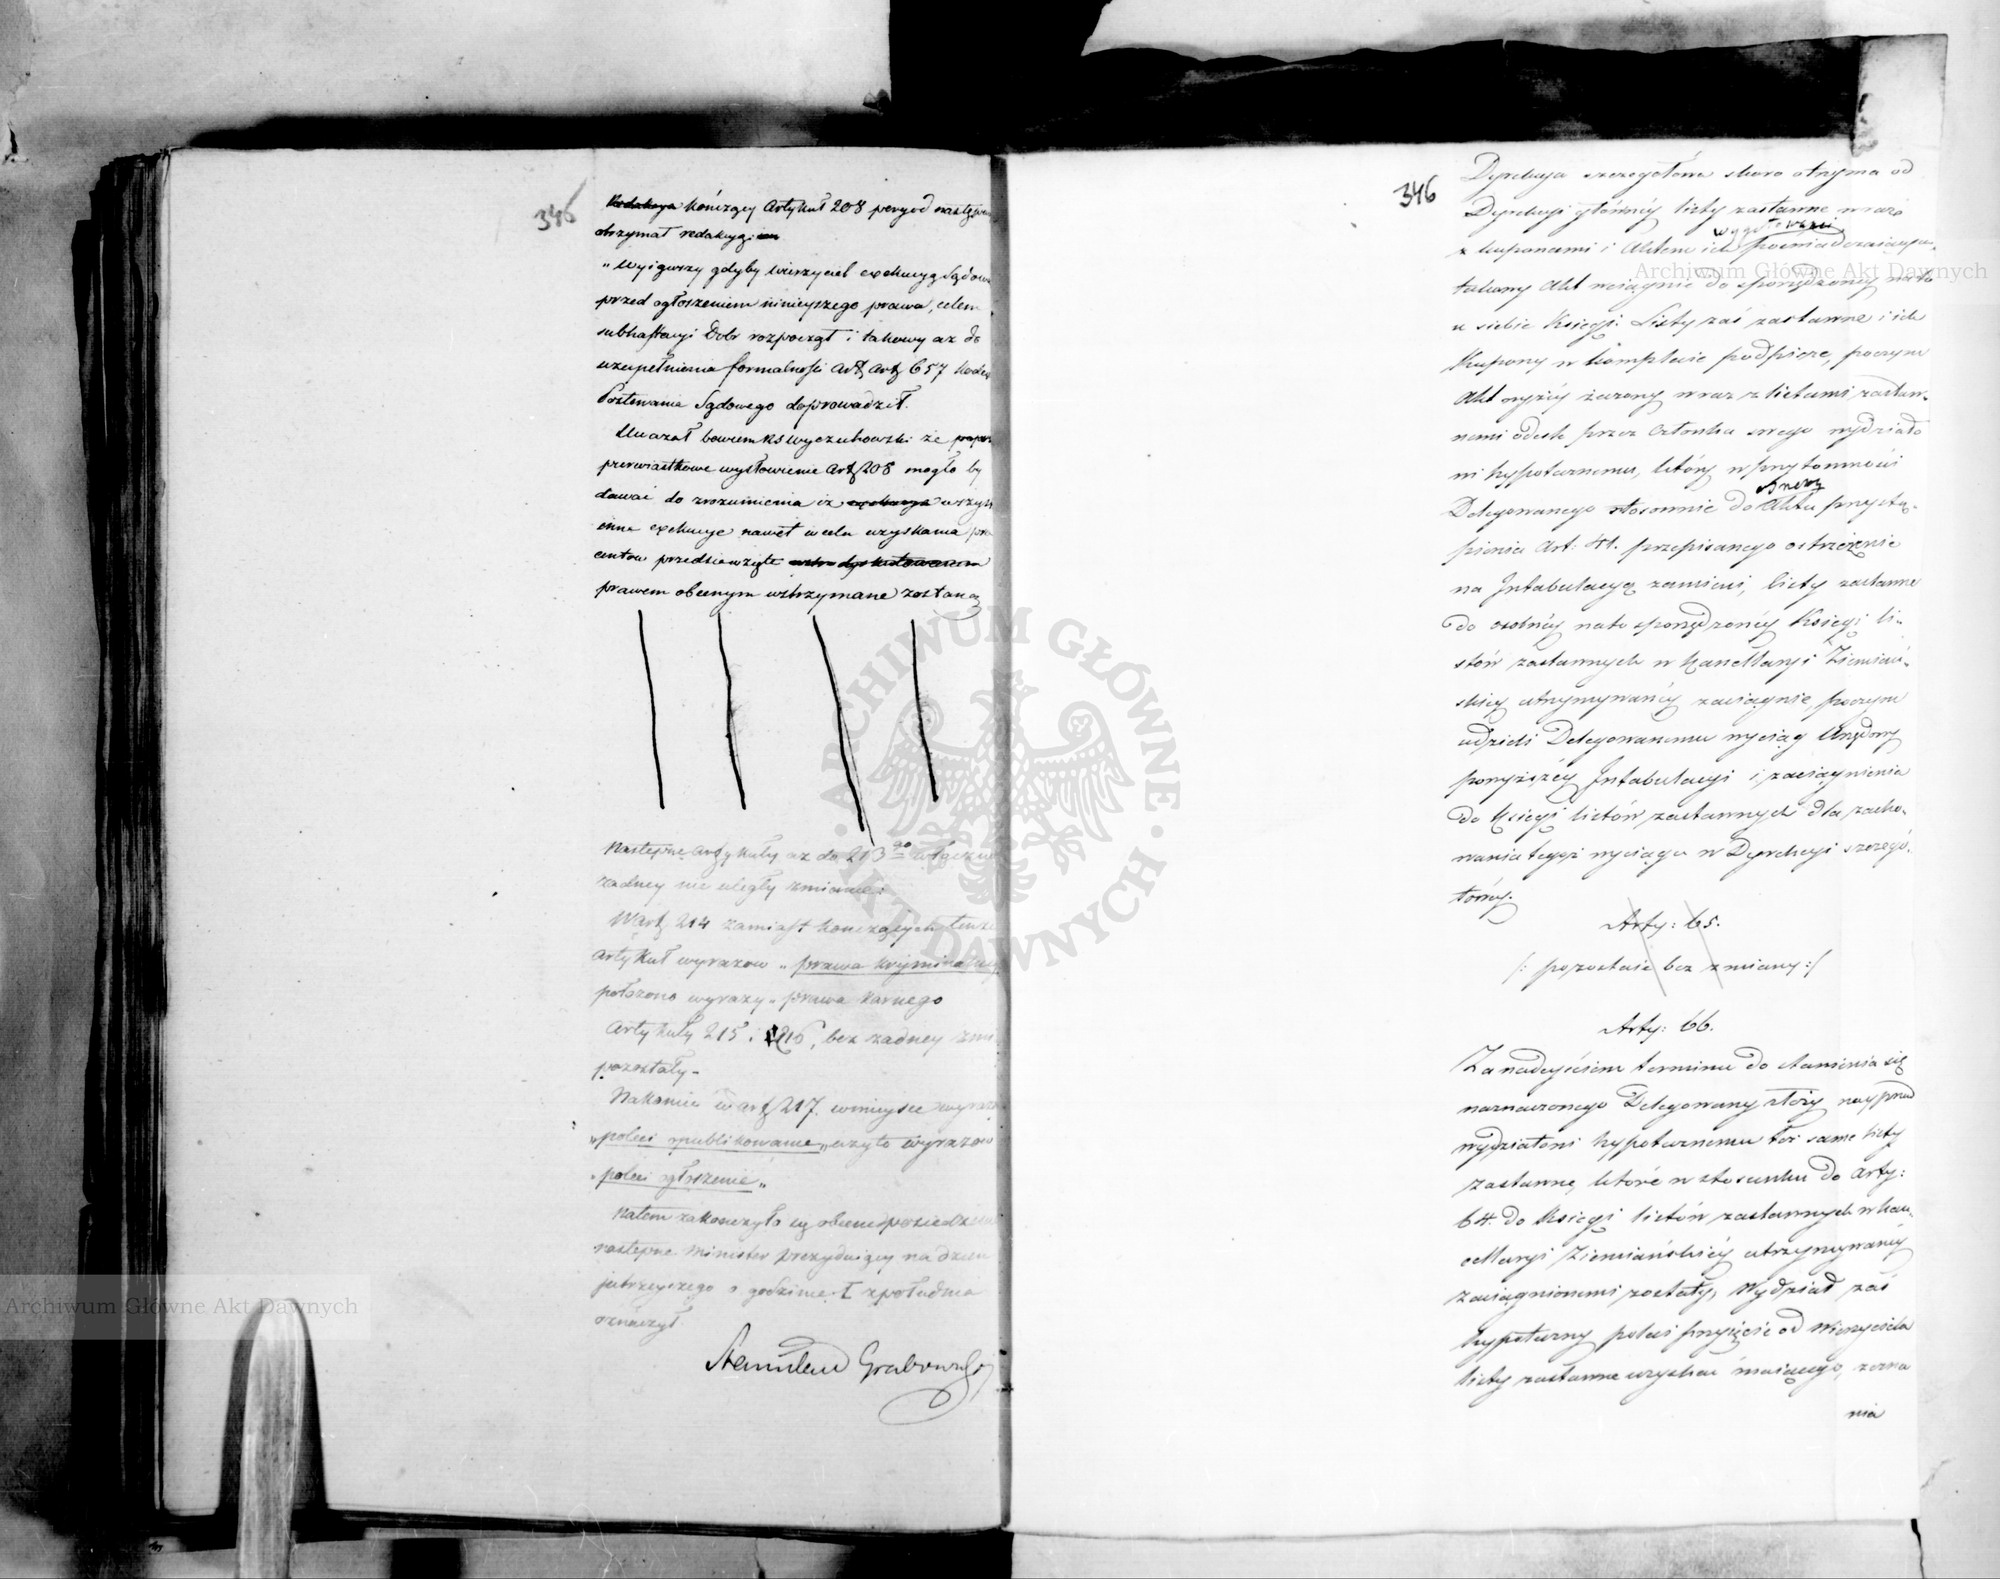 346
Redakcya kończący Artykuł 208 peryod następu
otrzymał redakcyą:
„wyiąwszy gdyby wierzyciel exekucyą Sądow
przed ogłoszeniem ninieyszego prawa, celem
subhastacyi Dóbr rozpoczął i takowy aż do
uzupełnienia formalności Art: 657 Kodex
Postowania Sądowego doprowadził.
Uważał bowiem że
pierwiastkowe wysłowienie Art 208 mogło by
dawać do zrozumienia iż exekucye wszys
inne exekucye nawet w celu uzyskania pro
centow przedsiewzięte
prawem obecnym wstrzymane zostaną
Następne artykuły aż do 213go włącznie
żadney nie uległy zmianie:
W Art 214 zamiast kończących tenże
Artykuł wyrazow „prawa kryminalne
położono wyrazy „prawa karnego
Artykuły 215 i 216, bez żadney zmi
pozostały -
Nakoniec w art 217. w mieysce wyrazo
„poleci publikowanie„ użyto wyrazow
„poleci ogłoszenie„
Natem zakończyło się obecne posiedzenie
następne Minister Prezyduiący na dzień
jutrzeyszego o godzinie I z południa
oznaczył.
Stanisław Grabowski
346
Dyrekcya szczegółowa skoro otrzyma od
Dyrekcyi głównéy listy zastawne wraz
wygotowani
z kuponami i Aktem ich
takowy Akt wciągnie do sporządzonéy na to
u siebie Księgi. Listy zaś zastawne i ich
Kupony w komplecie podpisze, poczym
Akt wyżéy rzeczony wraz z listami zastaw-
nemi odeśle przez Członka swego wydziało
wi hypotecznemu, który w przytomności
Delegowanego stosownie do Aktu przystą-
pienia Art: 41. przepisanego ostrzeżenie
na Intabulacyą zamieni, listy zastawne
do osobnéy na to sporządzonéy Księgi li-
stów zastawnych w Kancellaryi Ziemiań-
skiéy utrzymywanéy zaciągnie, poczym
udzieli Delegowanemu wyciąg Urzędowy
powyższéy Intabulacyi i zaciągnienia
do Księgi listów zastawnych dla zacho-
wania tegoż wyciągu w Dyrekcyi szczegó-
łowéy.
Arty: 65.
/: pozostaie bez zmiany :/
Arty: 66.
Za nadeyściem terminu do stawienia się
naznaczonego Delegowany złoży nayprzód
wydziałowi hypotecznemu też same listy
zastawne, które w stosunku do Arty:
64. do Księgi listów zastawnych w kan-
cellaryi Ziemiańskiéy utrzymywanéy
zaciągnionemi zostały, Wydział zaś
hypoteczny poleci przyięcie od Wierzyciela
listy zastawne uzyskać maiącego, zezna
nia
Archiwum Główne Akt Dawnych
Archiwum Główne Akt Dawnych
ARCHIWUM GŁÓWNE AKT DAWNYCH